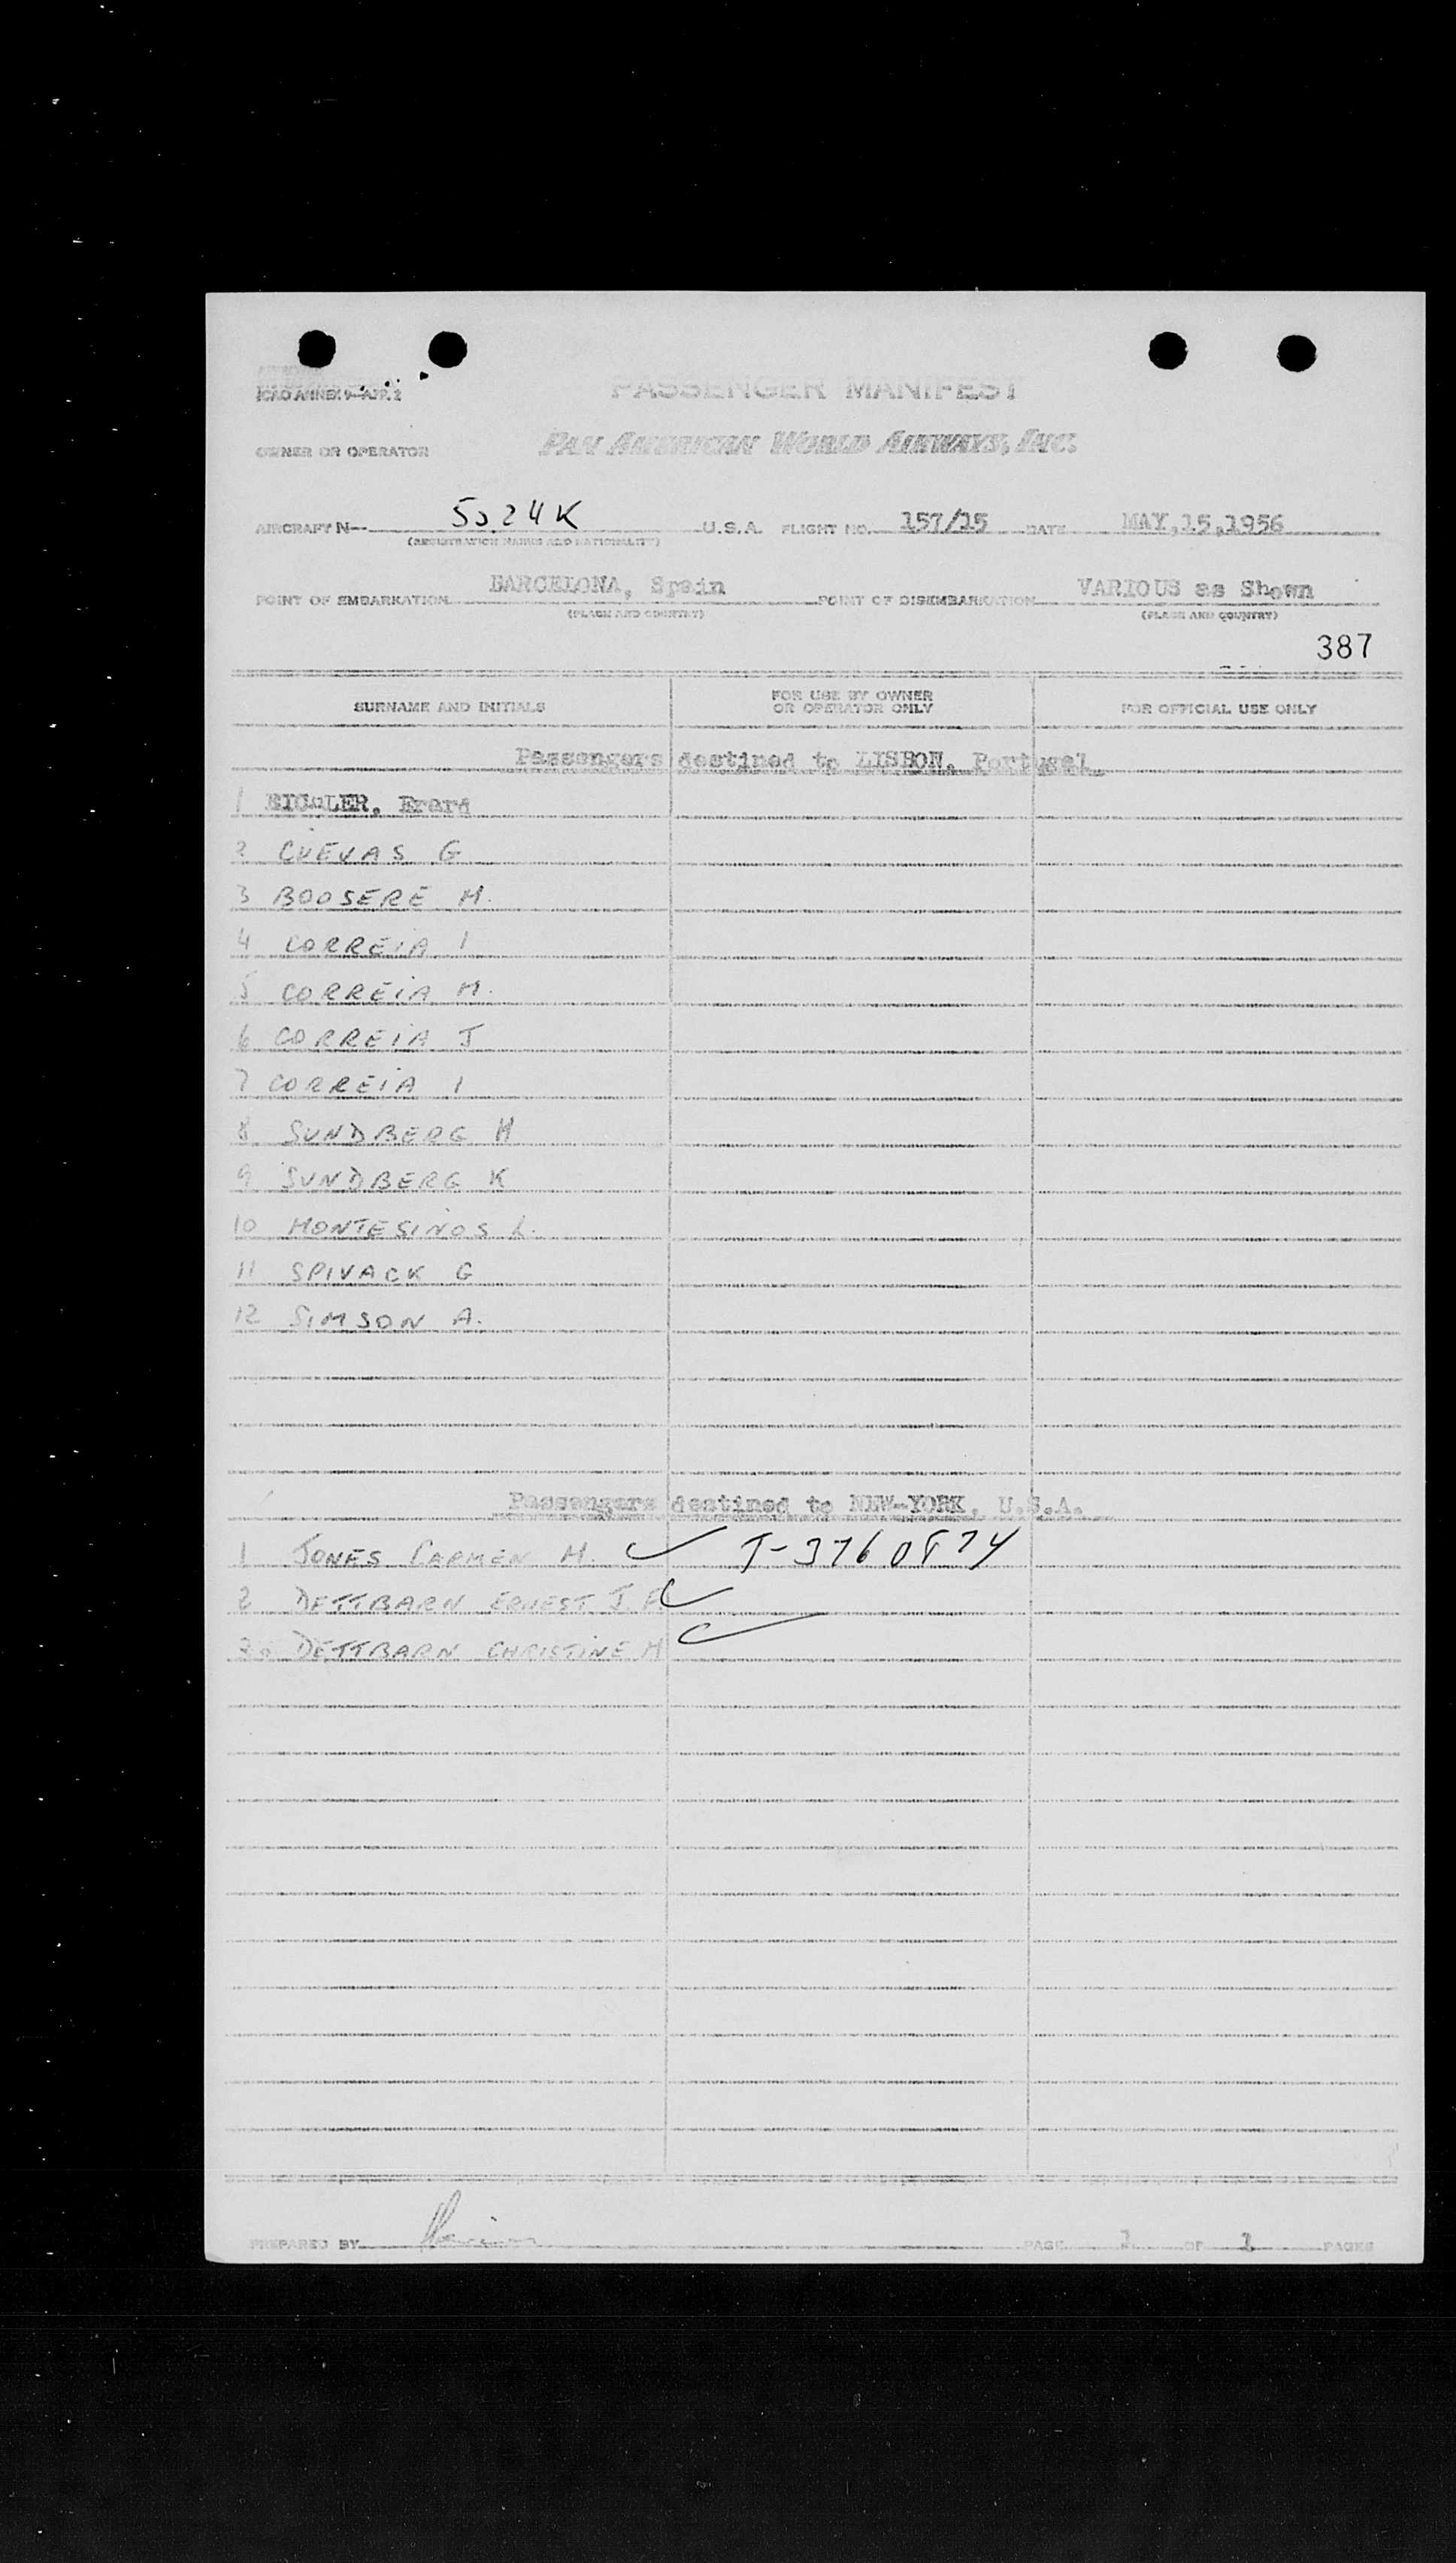 ICAO ANNEX 9—APP. 2
PASSENGER MANIFEST
OWNER OR OPERATOR PAN AMERICAN WORLD AIRWAYS, INC.
AIRCRAFT N— U.S.A. FLIGHT NO. 157/15 DATE MAY,15,1956
(REGISTRATION MARKS AND NATIONALITY)
POINT OF EMBARKATION BARCELONA, Spain POINT OF DISEMBARKATION VARIOUS as Shown
(PLACE AND COUNTRY) (PLACE AND COUNTRY)
387
SURNAME AND INITIALS FOR USE BY OWNER OR OPERATOR ONLY FOR OFFICIAL USE ONLY
Passengers destined to LISBON, Portugal
1 Erard
2 CUEVAS G
3 BOOSERE M.
4 CORREIA I
5 CORREIA M.
6 CORREIA J
7 CORREIA I
8 SUNDBERG H
9 SUNDBERG K
10 MONTESINOS L.
11 SPIVACK G
12 SIMSON A.
Passengers destined to NEW-YORK, U.S.A.
1 JONES CARMEN M. T-3760874
2 DETTBARN ERNEST J. F
3 DETTBARN CHRISTINE M
PREPARED BY PAGE 1 OF 1 PAGES